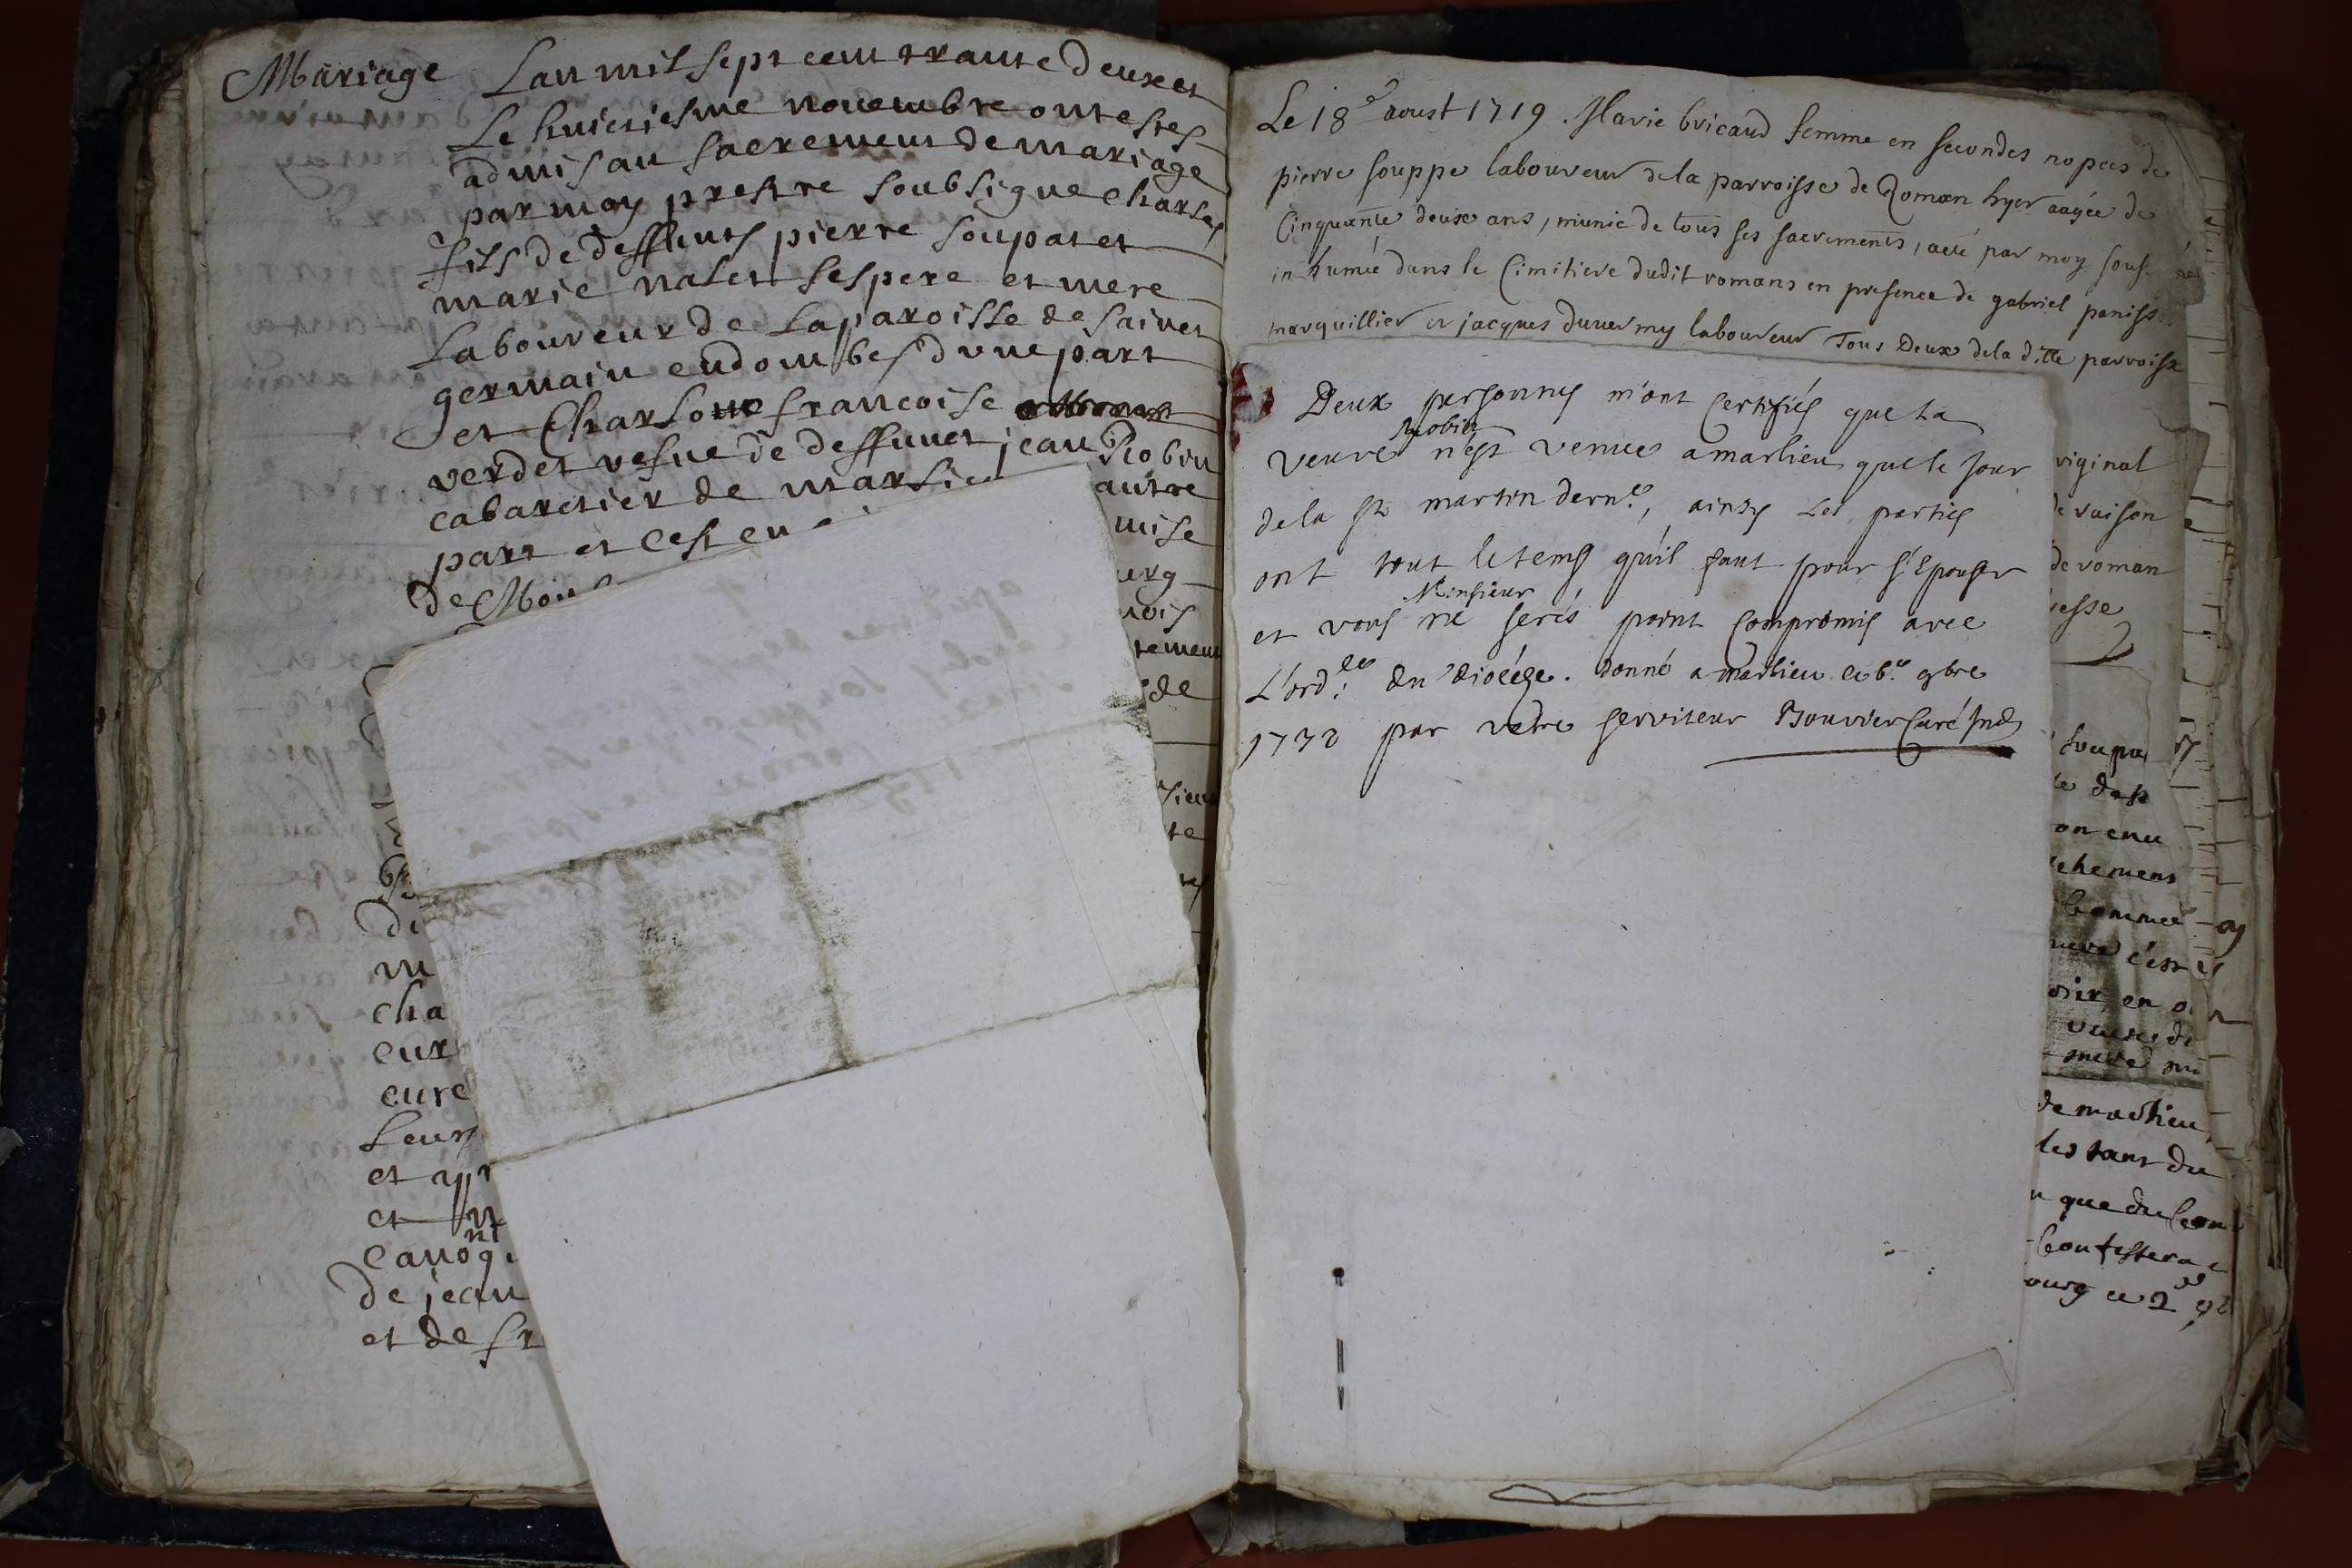 Mariage Lan mil sept cent trante deux et
Le huictiesme novembre ont estes
admis au sacrement de mariage
par moy prestre soubsigne Charles
fils de deffunts pierre soupat et
marie nalet ses pere et mere
Laboureur de Laparoisse de sainct
germain en dombes dvne part
et Charlotte francoise
verdet vefue de deffunct jean Robin
cabaretier de marlieu autre
part et cest en mise
de Mon urg
nois
tement
de
sieur
te
di
m
cha
cur
cure
Leurs
et apr
et
canog
de jean
et de fr
Le 18e aoust 1719. Marie bricaud femme en secondes nopces de
pierre souppe laboureur dela parroisse de Roman hyer aagée de
Cinquante deux ans, munie de tous ses sacrements, a eté par moy sous
inhumée dans le Cimitiere dudit romans en presence de gabriel peniss
marguillier et jacques duuermy laboureur Tous Deux dela ditte parroisse
Deux personnes m'ont certifiés que la
veuve Robin n'est venue a marlieu que le jour
dela st martin dern.e, ainsy Les parties
ont tout letems qu'il faut pour s'Epouser
et vous Monsieur ne serés point compromis avec
L'ord.re du diocése. Donné a marlieu ce 6.e 9bre
1732 par votre serviteur Bouvier Curé
riginal
de raison
de roman
esse
soupa
te desp
on enu
chemens
Comme
uere c'est
oir en
de marlieu
les tant du
n que du Com
Confessera
ourg ce 2e 9b